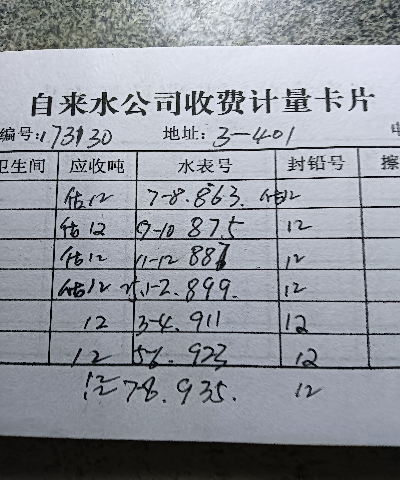 自来水公司收费计量卡片
编号:173130 地址:3-401
卫生间 应收吨 水表号 封铅号 擦
估12 7-8.863. 估12
估12 9-10 875 12
估12 11-12 887 12
估12 1-2.899. 12
12 3-4.911 12
12 5-6.923 12
12 7-8.935. 12